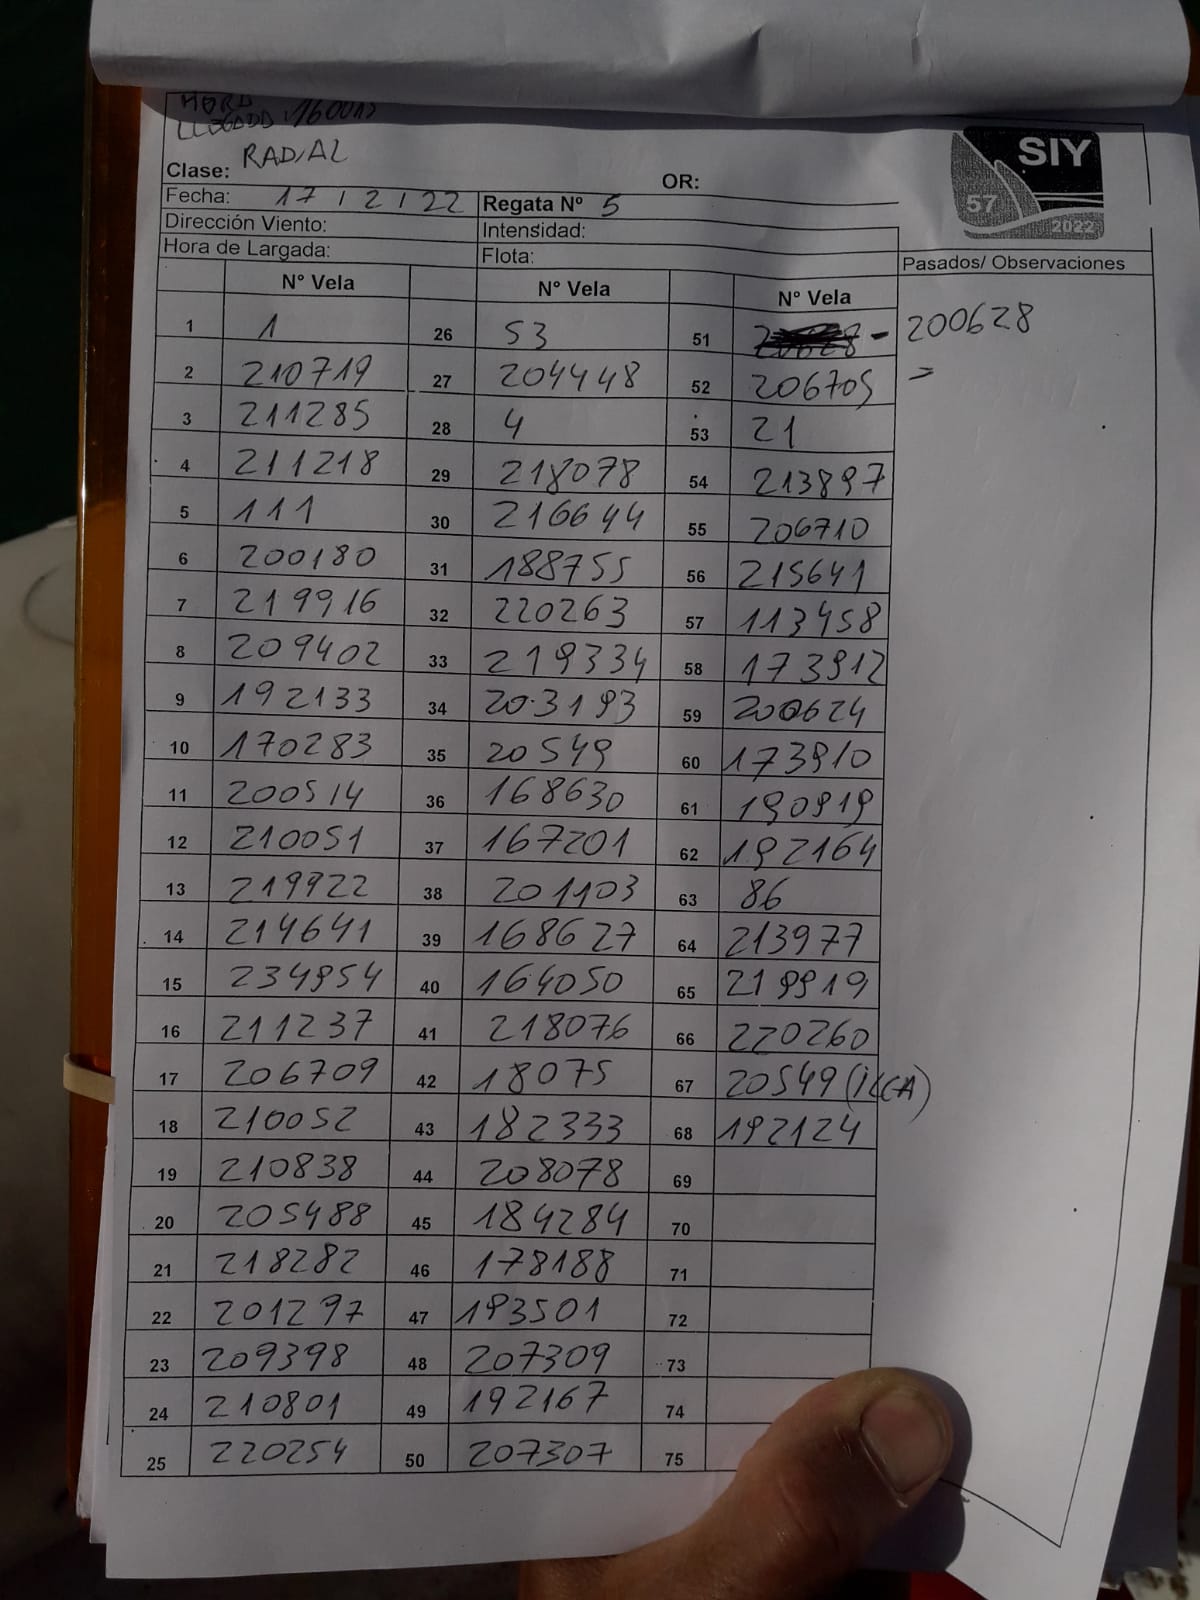 HORA
LLEGADA: 160013
Clase: RADIAL
OR:
SIY
57
2022
Fecha: 17 / 2 / 22 Regata Nº 5
Dirección Viento: Intensidad:
Hora de Largada: Flota:
Pasados/ Observaciones
Nº Vela Nº Vela Nº Vela
1 1 26 53 51 - 200628
2 210719 27 204448 52 206705
3 211285 28 4 53 21
4 211218 29 218078 54 213897
5 111 30 216644 55 206710
6 200180 31 188755 56 215641
7 219916 32 220263 57 113458
8 209402 33 219334 58 173912
9 192133 34 203193 59 200624
10 170283 35 20549 60 173910
11 200514 36 168630 61 190919
12 210051 37 167201 62 192164
13 219922 38 201103 63 86
14 214641 39 168627 64 213977
15 234954 40 164050 65 219919
16 211237 41 218076 66 220260
17 206709 42 18075 67 20549 (ILCA)
18 210052 43 182333 68 192124
19 210838 44 208078 69
20 205488 45 184284 70
21 218282 46 178188 71
22 201297 47 193501 72
23 209398 48 207309 73
24 210801 49 192167 74
25 220254 50 207307 75